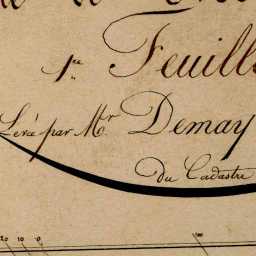 1re Feuille
Levé par Mr Demay
du Cadastre
20 10 0 100